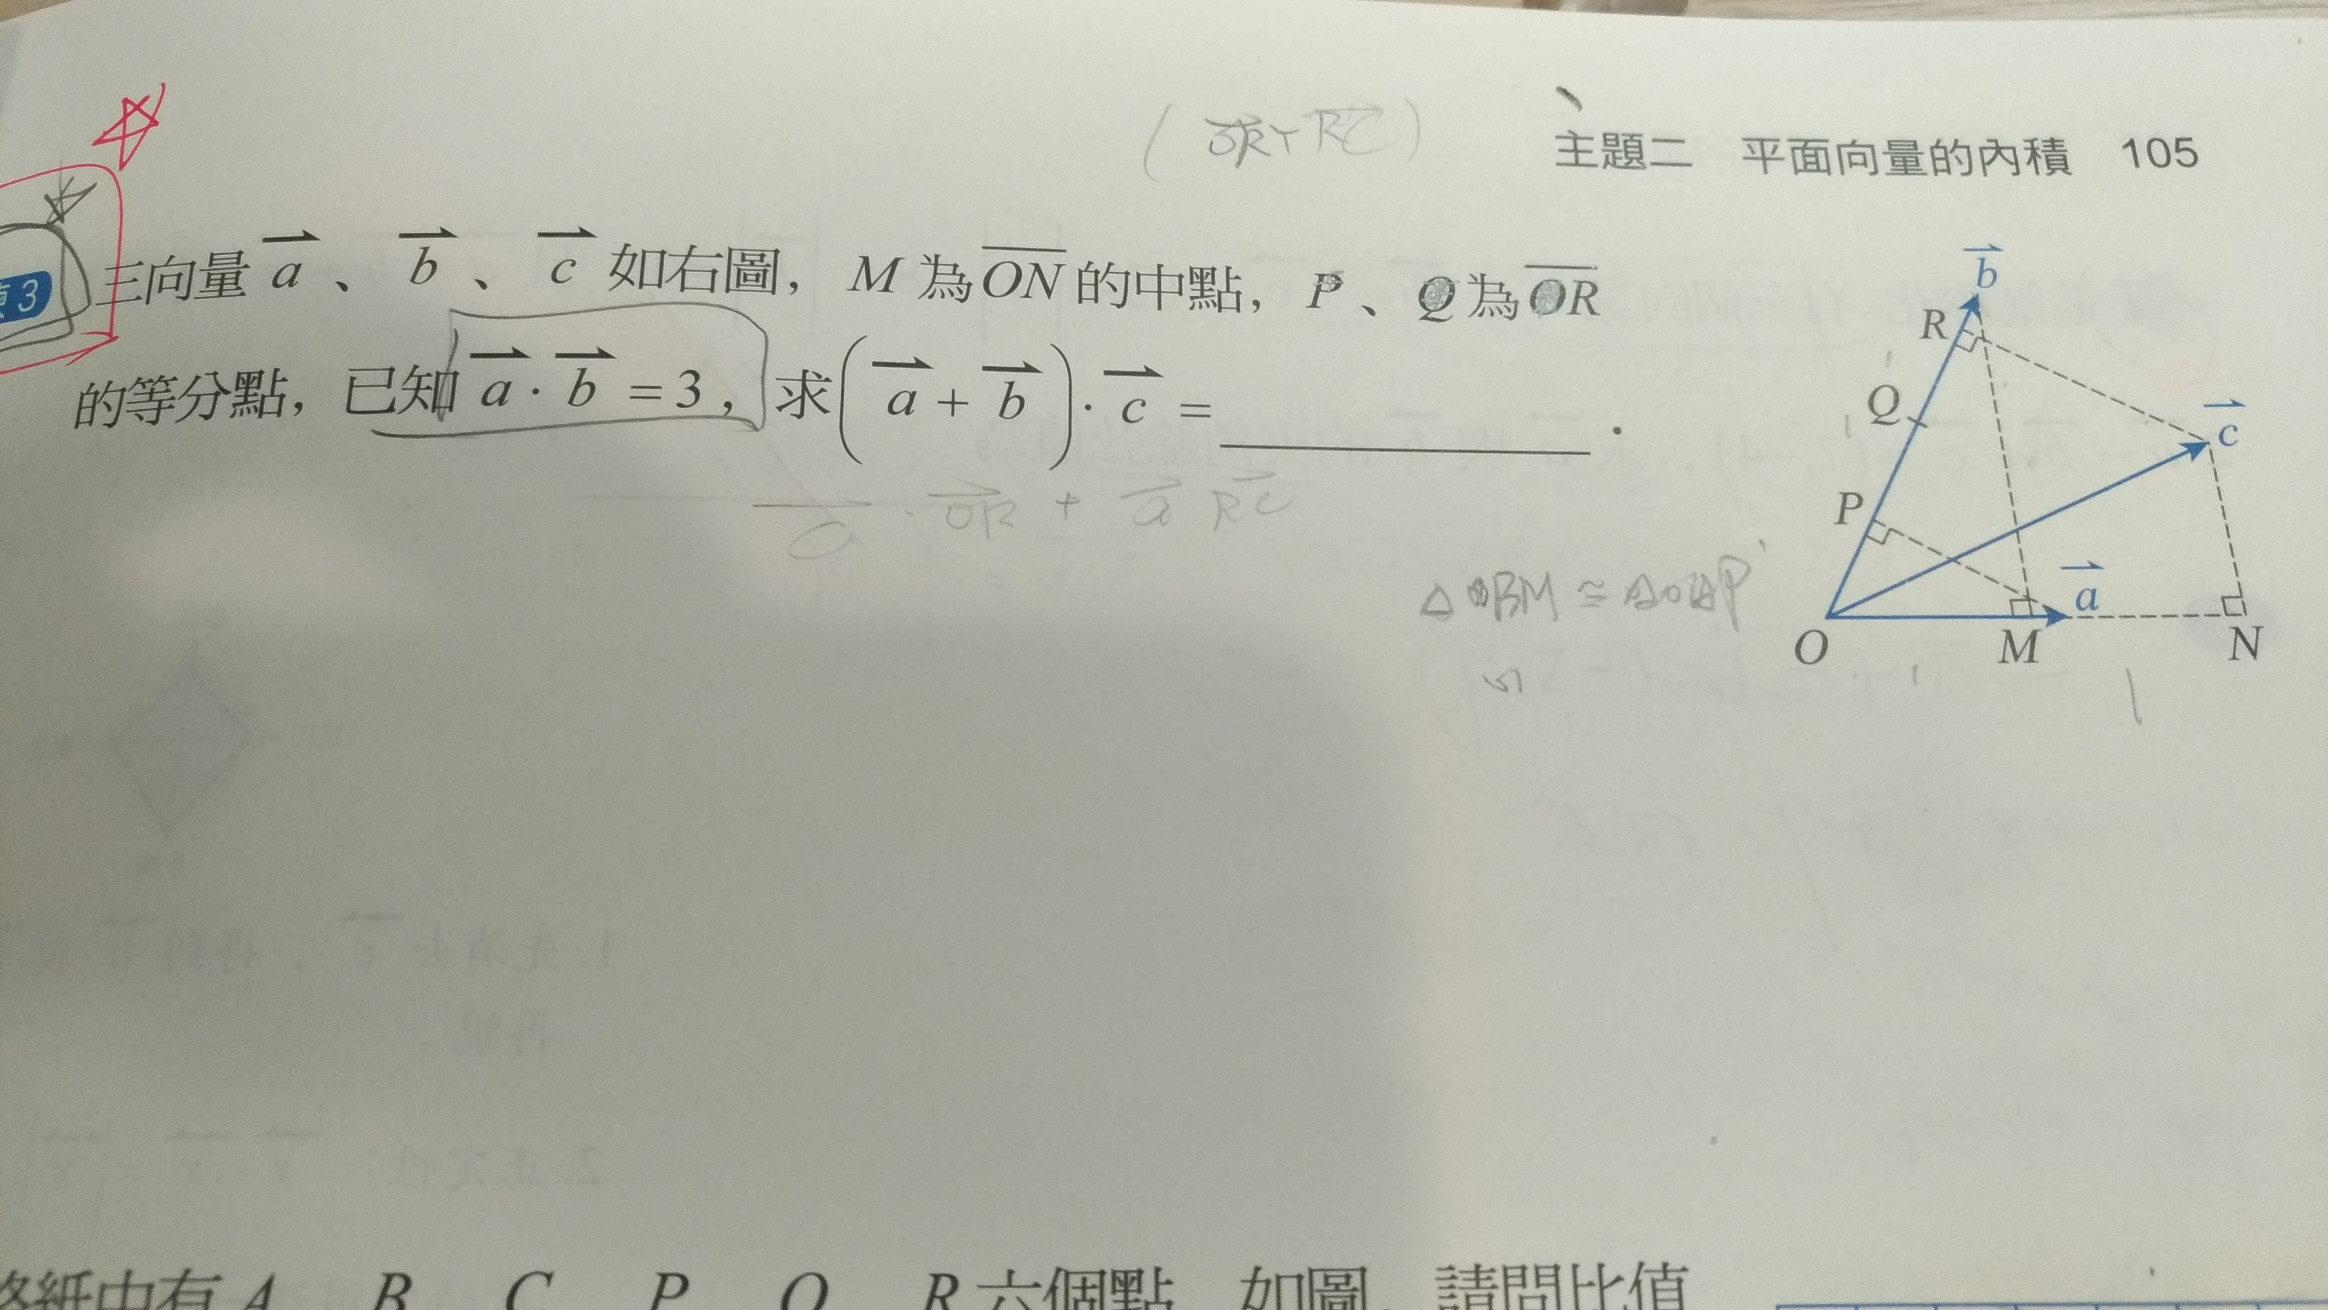 ( OR + RC )
主題二 平面向量的內積 105
3 三向量 a、b、c 如右圖，M 為 ON 的中點，P、Q 為 OR
的等分點，已知 a · b = 3，求( a + b ) · c = ＿＿＿＿．
· OR + a RC
b
R
Q
c
P
a
O M N
六個點
A B C P Q R 六個點 如圖 請問比值